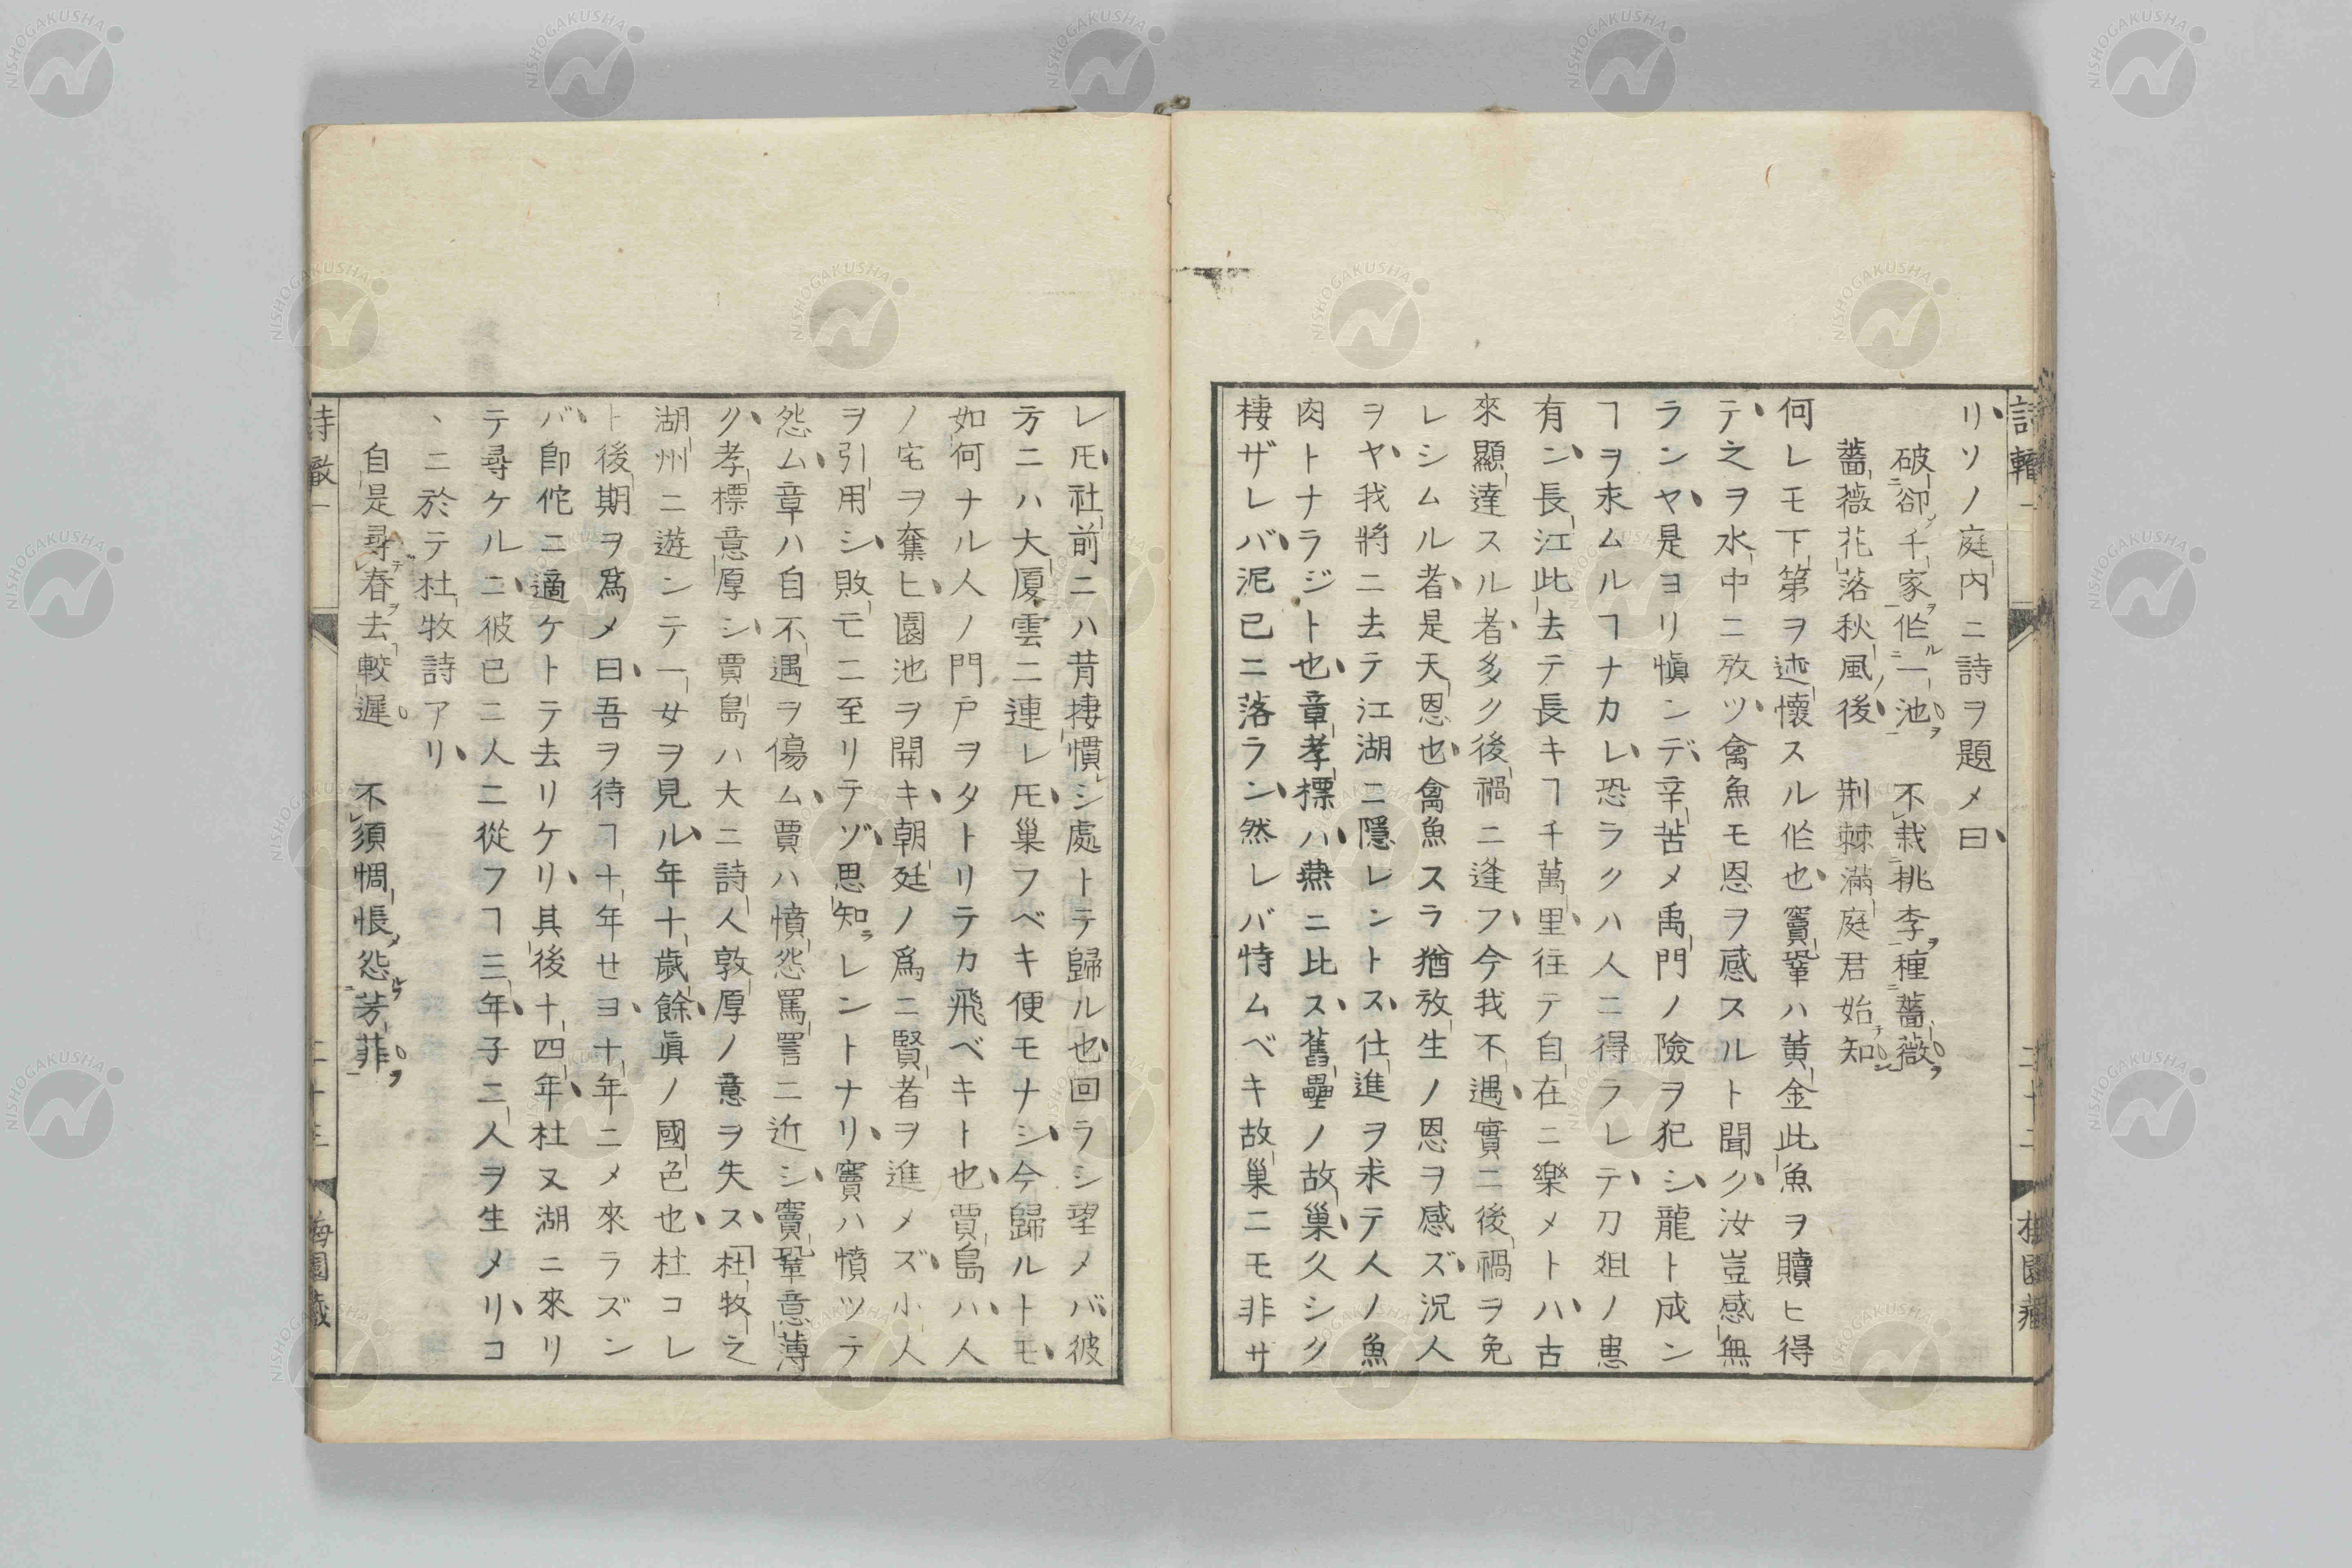 リソノ庭内ニ詩ヲ題メ曰
破卻千家作一池 不栽桃李種薔薇
薔薇花落秋風後 荆棘滿庭君始知
何レモ下第ヲ述懷スル作也竇鞏ハ黄金此魚ヲ贖ヒ得
テ之ヲ水中ニ放ツ禽魚モ恩ヲ感スルト聞ク汝豈感無
ランヤ是ヨリ愼ンデ辛苦メ禹門ノ險ヲ犯シ龍ト成ン
ヿヲ求ムルヿナカレ恐ラクハ人ニ得ラレテ刀俎ノ患
有ン長江此去テ長キヿ千萬里往テ自在ニ樂メトハ古
來顯達スル者多ク後禍ニ逢フ今我不遇實ニ後禍ヲ免
レシムル者是天恩也禽魚スラ猶放生ノ恩ヲ感ズ況人
ヲヤ我將ニ去テ江湖ニ隱レントス仕進ヲ求テ人ノ魚
肉トナラジト也章孝標ハ燕ニ比ス舊壘ノ故巢久シク
棲ザレバ泥已ニ落ラン然レバ恃ムベキ故巢ニモ非サ
レ𪜈社前ニハ昔棲慣シ處トテ歸ル也回ラシ望メバ彼
方ニハ大廈雲ニ連レ𪜈巢フベキ便モナシ今歸ルトモ
如何ナル人ノ門戸ヲタトリテカ飛ベキト也賈島ハ人
ノ宅ヲ奪ヒ園池ヲ開キ朝廷ノ爲ニ賢者ヲ進メズ小人
ヲ引用シ敗亡ニ至リテゾ思知ラレントナリ竇ハ憤ツテ
怨ム章ハ自不遇ヲ傷ム賈ハ憤怨罵詈ニ近シ竇鞏意薄
ク孝標意厚シ賈島ハ大ニ詩人敦厚ノ意ヲ失ス杜牧之
湖州ニ遊ンテ一女ヲ見ル年十歲餘眞ノ國色也杜コレ
ト後期ヲ爲メ曰吾ヲ待ヿ十年セヨ十年ニメ來ラズン
バ卽佗ニ適ケトテ去リケリ其後十四年杜又湖ニ來リ
テ尋ケルニ彼已ニ人ニ從フヿ三年子二人ヲ生メリコ
ヽニ於テ杜牧詩アリ
自是尋春去較遲 不須惆悵怨芳菲
詩轍一
二十三
梅園藏